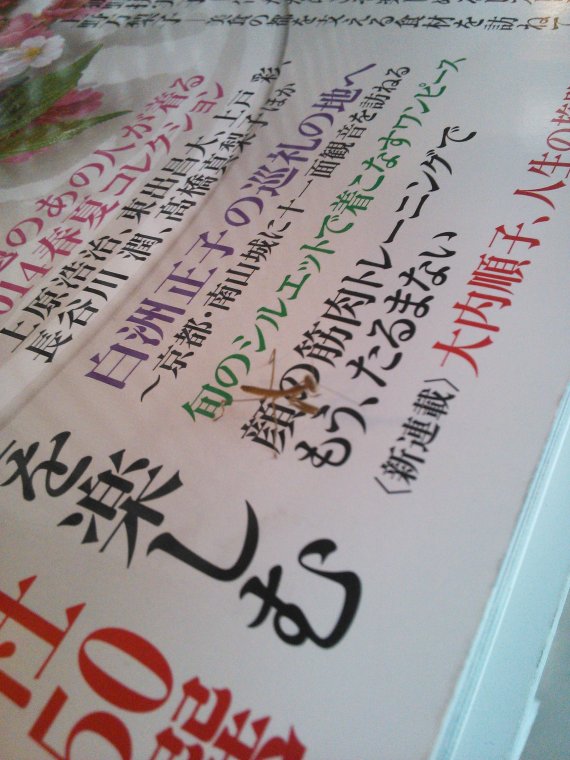 旅を支える食材を訪ね
のあの人が着る
2014春夏コレクション
上原浩治、東出昌大、上戸 彩、
長谷川 潤、高橋真梨子ほか
白洲正子の巡礼の地へ
〜京都・南山城に十一面観音を訪ねる
旬のシルエットで着こなすワンピース
顔の筋肉トレーニングで
もう、たるまない
〈新連載〉大内順子、人生の
を楽しむ
社
50選